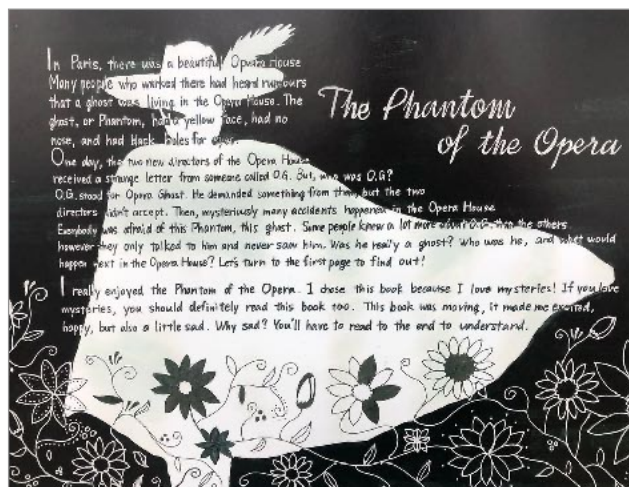 In Paris, there was a beautiful Opera House
Many people who worked there had heard rumours
that a ghost was living in the Opera House. The
ghost, or Phantom, had a yellow face, had no
nose, and had black holes for eyes.
The Phantom
of the Opera
One day, the two new directors of the Opera House
received a strange letter from someone called O.G. But, who was O.G?
O.G. stood for Opera Ghost. He demanded something from them, but the two
directors didn't accept. Then, mysteriously many accidents happened in the Opera House
Everybody was afraid of this Phantom, this ghost. Some people knew a lot more about O.G. than the others
however they only talked to him and never saw him. Was he really a ghost? Who was he, and what would
happen next in the Opera House? Let's turn to the first page to find out!
I really enjoyed the Phantom of the Opera. I chose this book because I love mysteries! If you love
mysteries, you should definitely read this book too. This book was moving, it made me excited,
happy, but also a little sad. Why sad? You'll have to read to the end to understand.